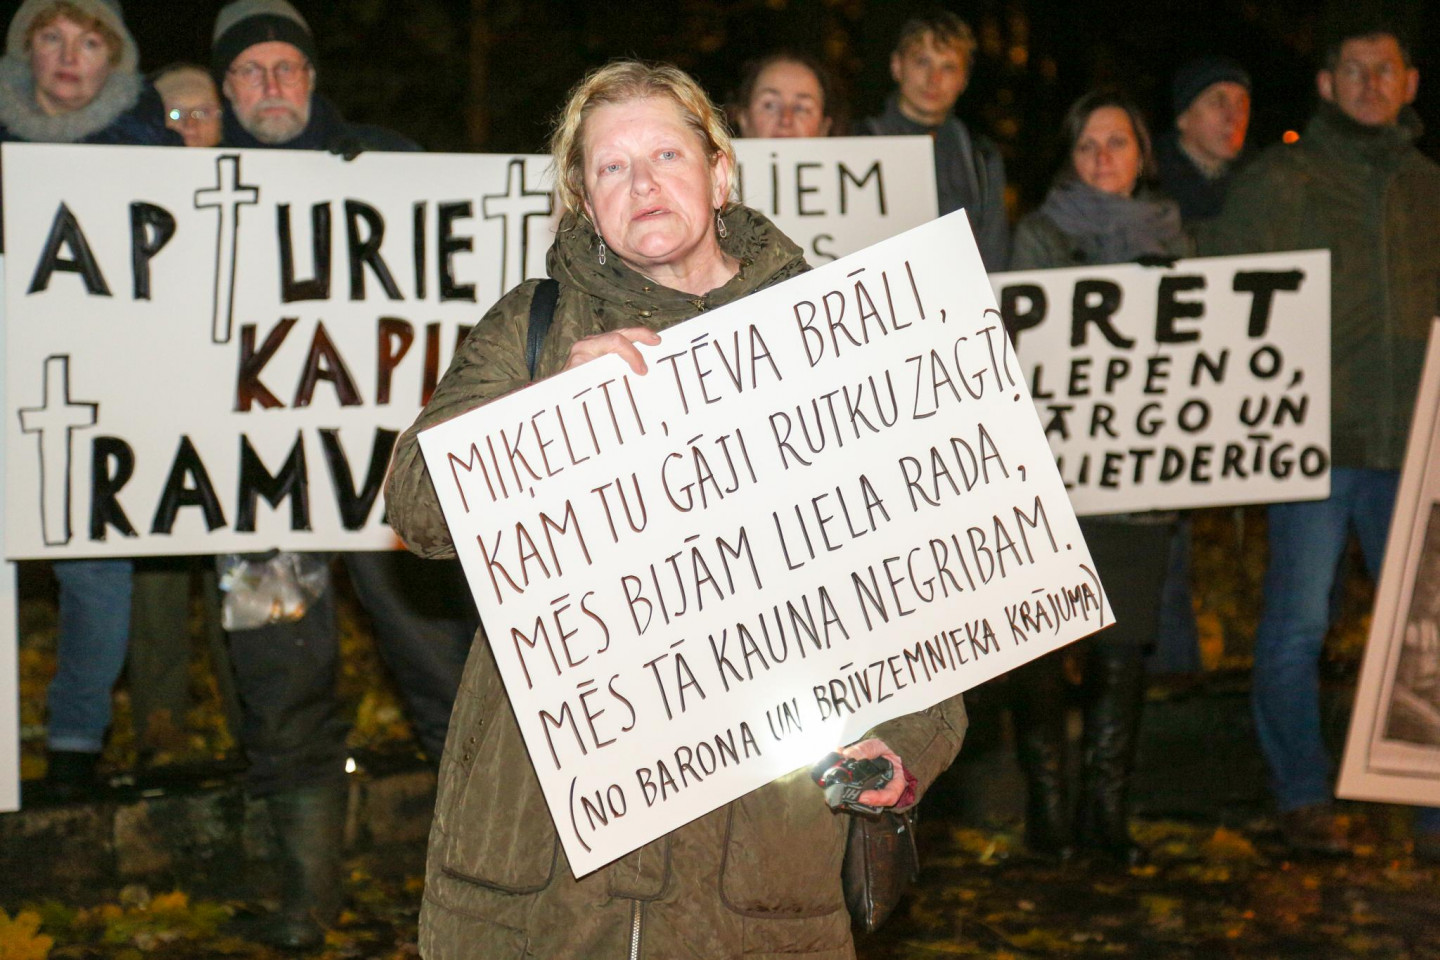 APTURIET
KAPI
TRAMV
LIEM
S
MIĶELĪTI, TĒVA BRĀLI,
KAM TU GĀJI RUTKU ZAGT?
MĒS BIJĀM LIELA RADA,
MĒS TĀ KAUNA NEGRIBAM.
(NO BARONA UN BRĪVZEMNIEKA KRĀJUMA)
PRET
LEPENO,
ĀRGO UN
LIETDERĪGO